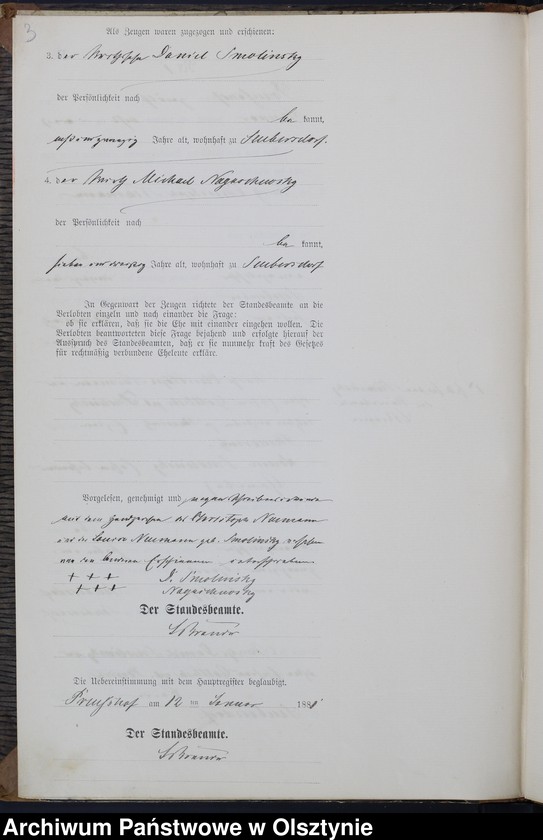 3
Als Zeugen waren zugezogen und erschienen:
3. der Wirthssohn Daniel Smolinsky
der Persönlichkeit nach
be kannt,
Jahre alt, wohnhaft zu Seubersdorf.
4. der Wirth Michael Nagorchnosky
der Persönlichkeit nach
be kannt,
sieben und vierzig Jahre alt, wohnhaft zu Seubersdorf
In Gegenwart der Zeugen richtete der Standesbeamte an die
Verlobten einzeln und nach einander die Frage:
ob sie erklären, daß sie die Ehe mit einander eingehen wollen. Die
Verlobten beantworteten diese Frage bejahend und erfolgte hierauf der
Ausspruch des Standesbeamten, daß er sie nunmehr kraft des Gesetzes
für rechtmäßig verbundene Eheleute erkläre.
Vorgelesen, genehmigt und wegen Schreibensunkunde
mit dem Handzeichen des Christoph Neumann
und der Louise Neumann geb. Smolinsky versehen
von den anderen Erschienenen unterschrieben
+ + + D. Smolinsky
+ + + Nagorchnosky
Der Standesbeamte.
Die Uebereinstimmung mit dem Hauptregister beglaubigt.
am 12 ten Januar 1881
Der Standesbeamte.
Archiwum Państwowe w Olsztynie